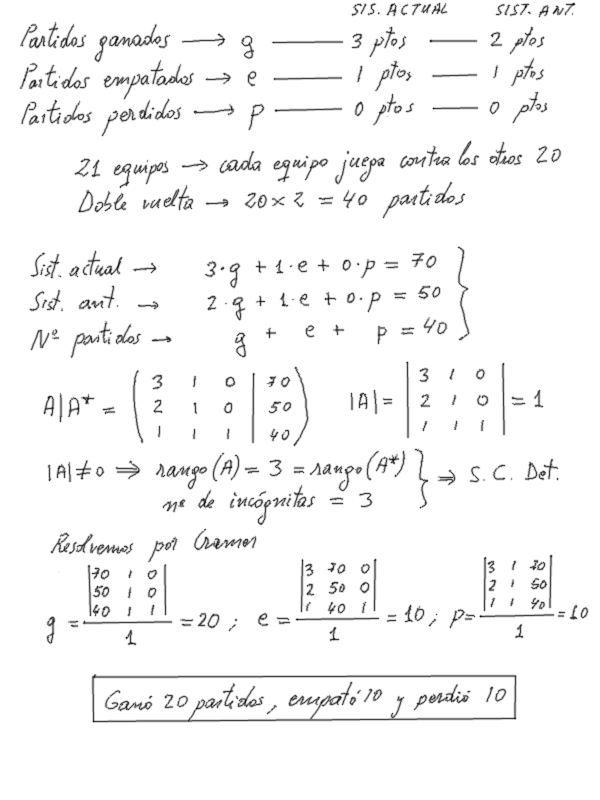 SIS. ACTUAL SIST. ANT.
Partidos ganados → g — 3 ptos — 2 ptos
Partidos empatados → e — 1 ptos — 1 ptos
Partidos perdidos → p — 0 ptos — 0 ptos
21 equipos → cada equipo juega contra los otros 20
Doble vuelta → 20 × 2 = 40 partidos
Sist. actual → 3·g + 1·e + 0·p = 70
Sist. ant. → 2·g + 1·e + 0·p = 50
Nº partidos → g + e + p = 40
A|A* = ( 3 1 0 | 70 ) |A| = | 3 1 0 | = 1
2 1 0 | 50 2 1 0
1 1 1 | 40 1 1 1
|A| ≠ 0 ⇒ rango (A) = 3 = rango (A*) } ⇒ S. C. Det.
nº de incógnitas = 3
Resolvemos por Cramer
g = |70 1 0| / 1 = 20 ; e = |3 70 0| / 1 = 10 ; p = |3 1 70| / 1 = 10
50 1 0 2 50 0 2 1 50
40 1 1 1 40 1 1 1 40
Ganó 20 partidos, empató 10 y perdió 10